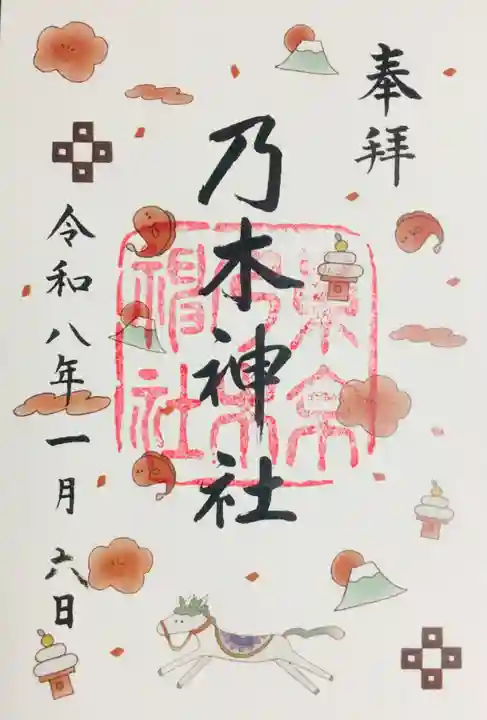 奉拝
乃木神社
東京
乃木
神社
令和八年一月六日